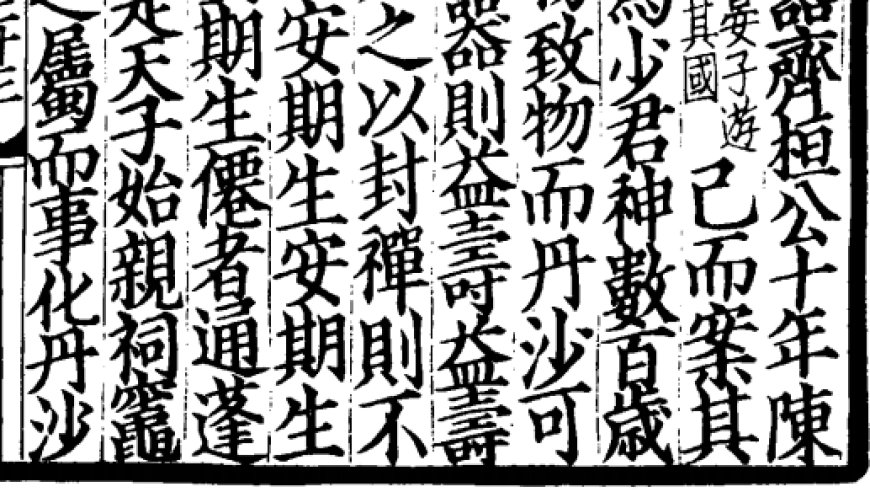 器齊桓公十年陳
晏子遊
其國
已而案其
爲少君神數百歲
致物而丹沙可
器則益壽益壽
之以封禪則不
安期生安期生
期生僊者通蓬
是天子始親祠竈
之屬而事化丹沙